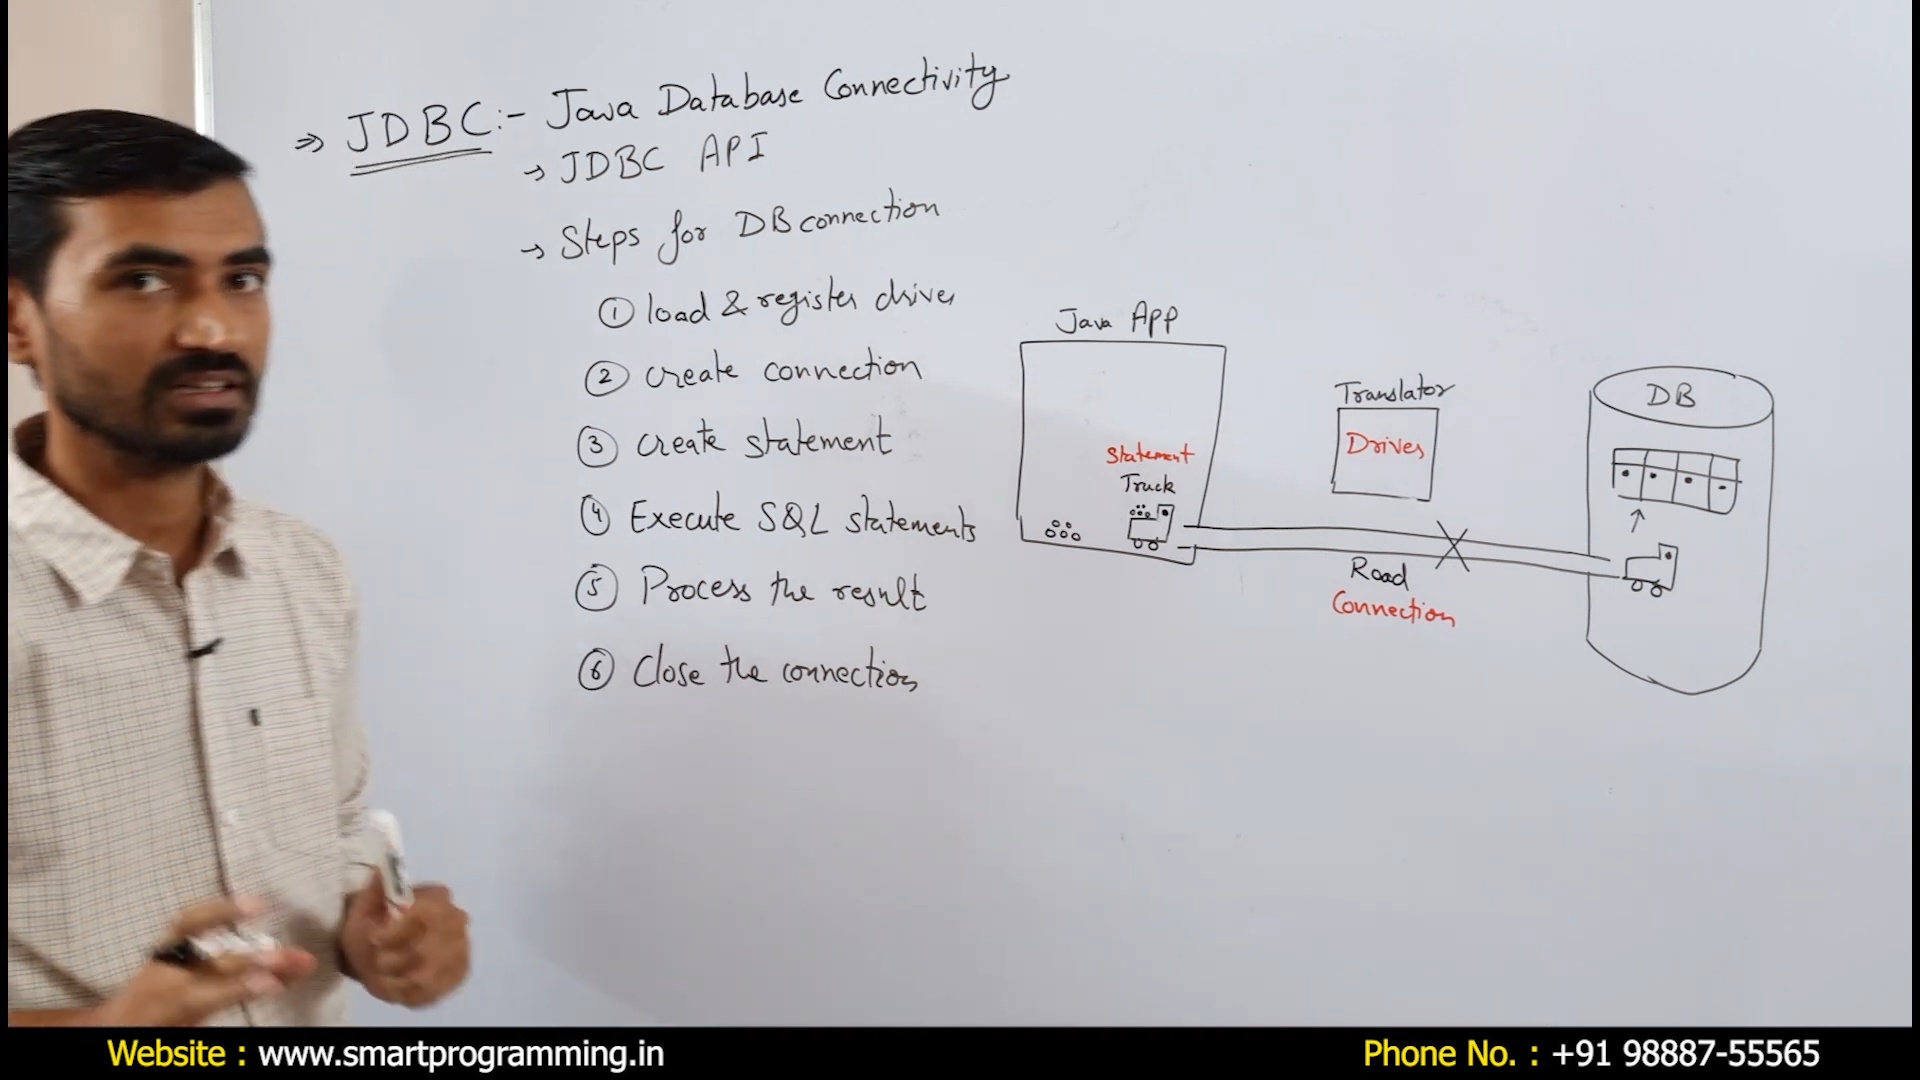 ⇒ JDBC :- Java Database Connectivity
→ JDBC API
→ Steps for DB connection
① load & register driver
② create connection
③ create statement
④ Execute SQL statements
⑤ Process the result
⑥ Close the connection
Java App
Statement
Truck
Translator
Driver
Road
Connection
DB
Website : www.smartprogramming.in
Phone No. : +91 98887-55565